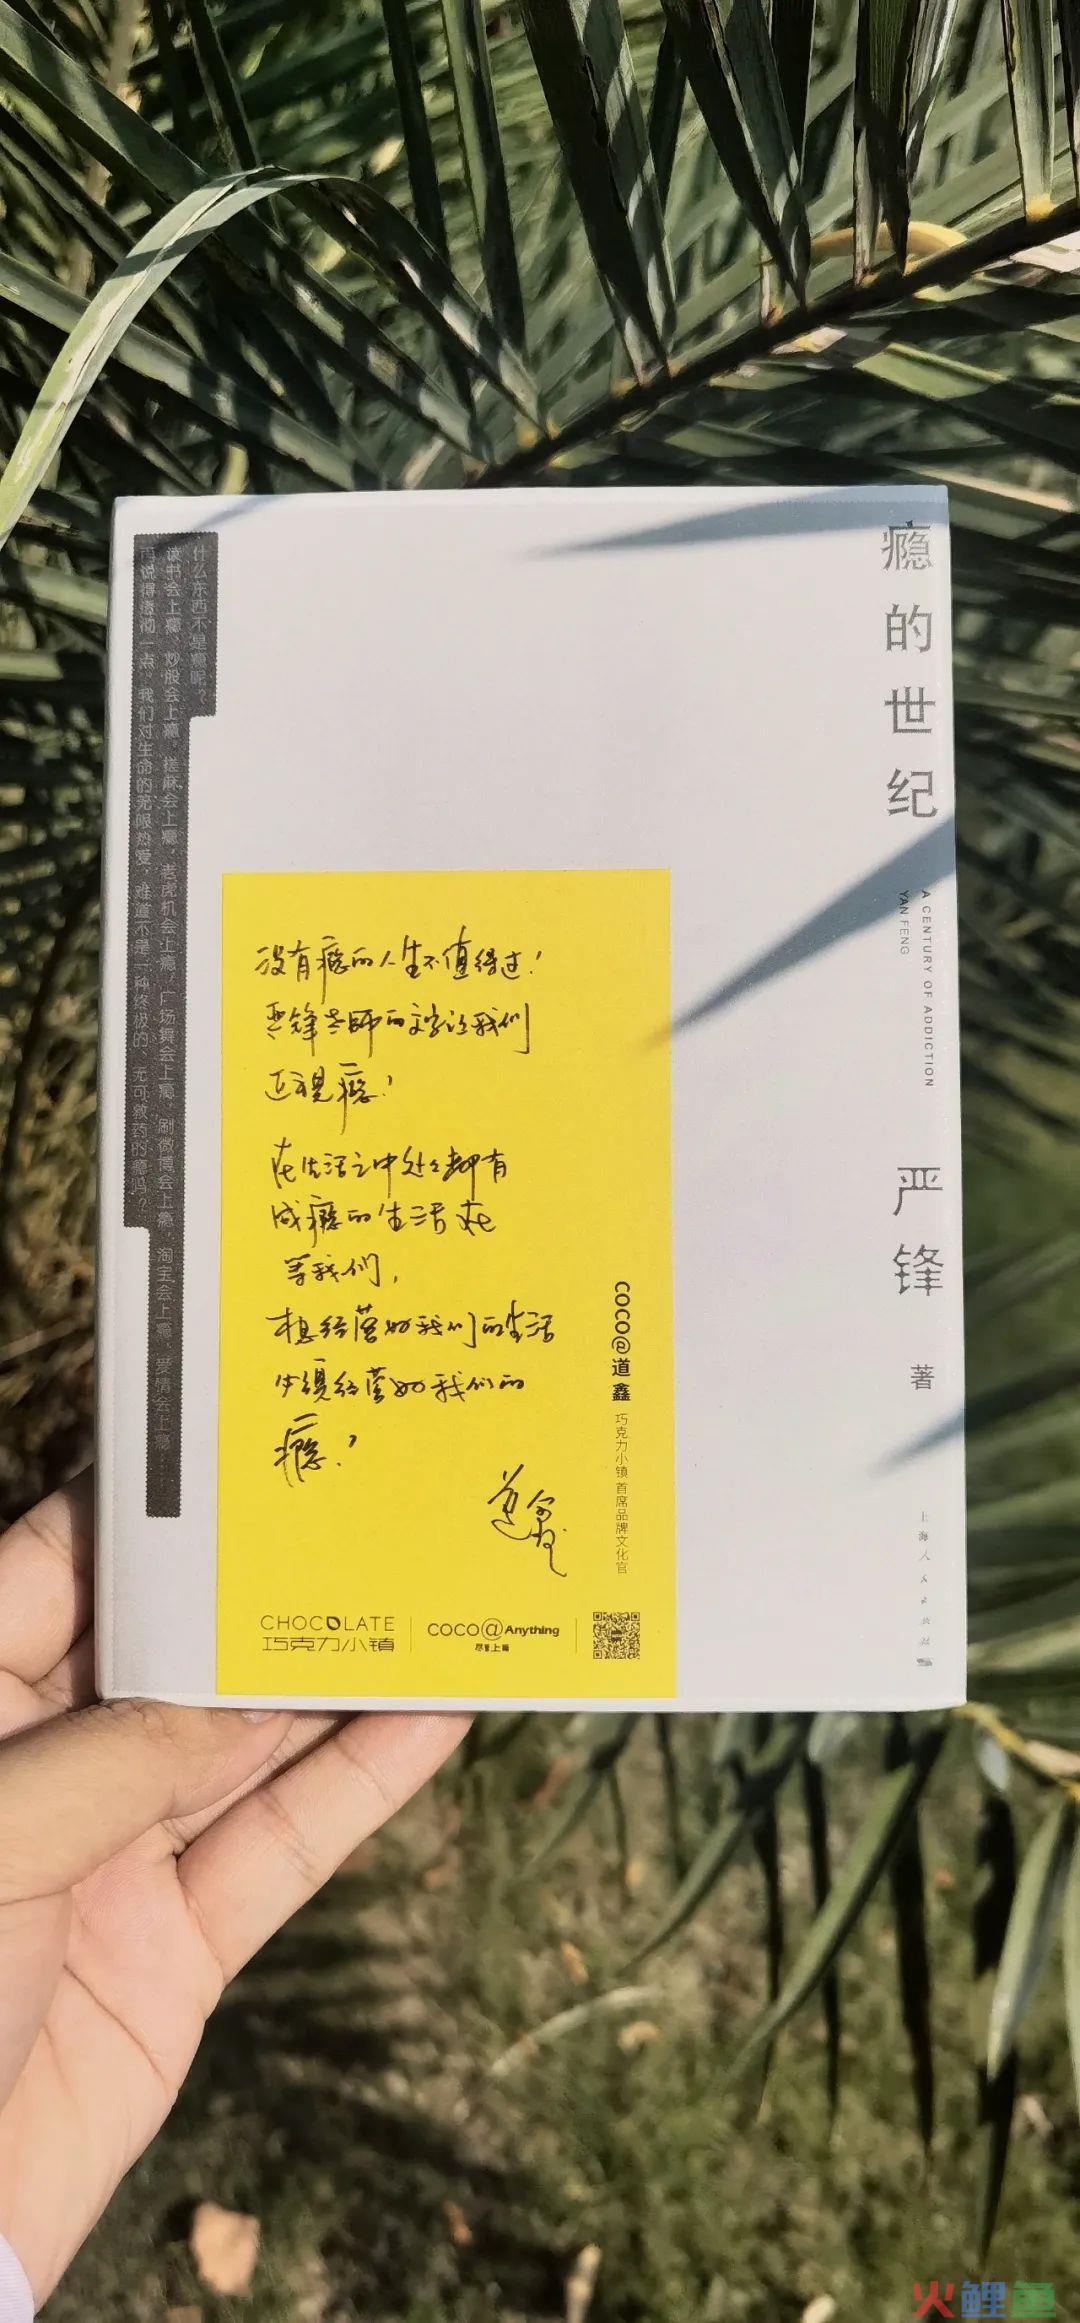 瘾的世纪
A CENTURY OF ADDICTION
YAN FENG
严锋 著
上海人民出版社
什么东西不是瘾呢？
读书会上瘾，炒股会上瘾，搓麻会上瘾，老虎机会上瘾，广场舞会上瘾，刷微博会上瘾，淘宝会上瘾，爱情会上瘾，
再说得透彻一点。我们对生命的无限热爱，难道不是一种终极的、无可救药的瘾吗？
没有瘾的人生不值得过！
严锋老师的文字让我们
正视瘾！
在生活之中处处都有
成瘾的生活在
等我们，
想经营好我们的生活
必须经营好我们的
瘾！
道鑫
COCO@道鑫 巧克力小镇 首席品牌文化官
CHOCOLATE
巧克力小镇
COCO@Anything
尽管上瘾
火鲤鱼